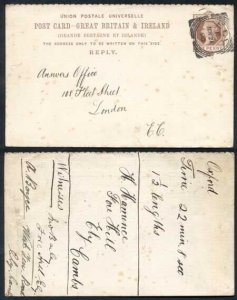 UNION POSTALE UNIVERSELLE
POST CARD - GREAT BRITAIN & IRELAND
(GRANDE BRETAGNE ET IRLANDE)
THE ADDRESS ONLY TO BE WRITTEN ON THIS SIDE.
REPLY.
Answers Office
Fleet Street
London
E.C.
Oxford
Time 22 min 8 sec
1½ lengths
H
Fore Hill
Ely
Cambs
Witnesses
Fore Hill Ely
A.